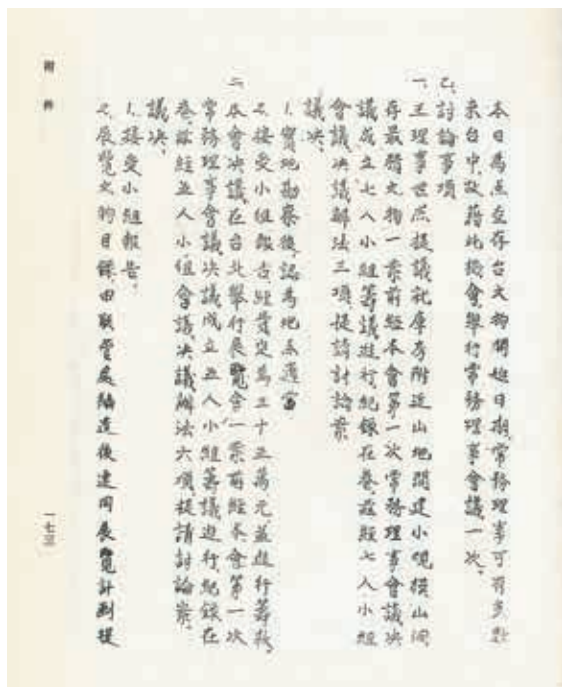 本日為点查存台文物開始日期,常務理事可有多數
來台中,故藉此機會,舉行常務理事會議一次。
乙、討論事項
一、王理事世杰提議就庫房附近山地開建小規模山洞
存最精文物一案前經本會第一次常務理事會議決
議成立七人小組籌議進行紀錄在卷,茲經七人小組
會議決議辦法三項,提請討論案
議決、
1.實地勘察後,認為地点適當
2.接受小組報告,經費定為三十五萬元,並進行籌款。
二、本會決議在台北舉行展覽會一案前經本會第一次
常務理事會議決議成立五人小組籌議進行紀錄在
卷,茲經五人小組會議決議辦法六項,提請討論案。
議決、
1.接受小組報告。
2.展覽文物目錄,由聯管處編造後連同展覽計劃提
附件
一七三